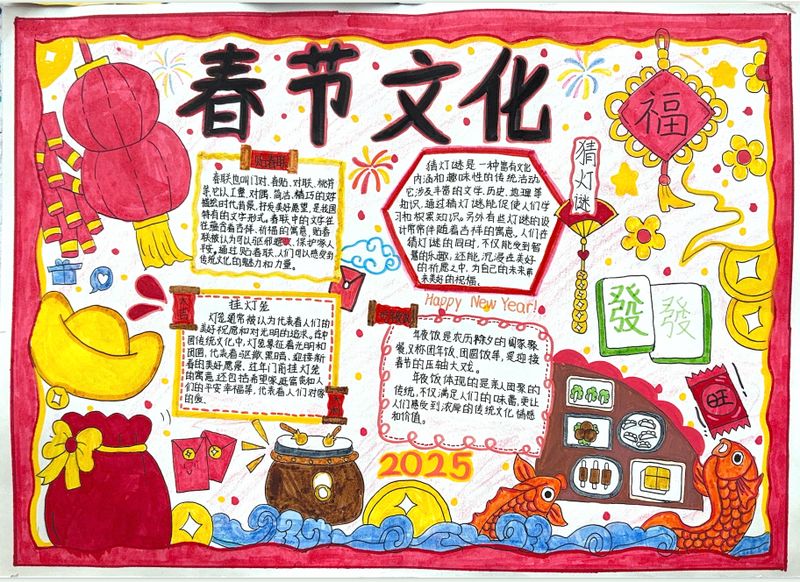 春节文化
贴春联
春联也叫门对、春贴、对联、桃符
等,它以工整、对偶、简洁、精巧的文字
描绘时代背景,抒发美好愿望,是我国
特有的文学形式。春联中的文字往
往蕴含着吉祥、祈福的寓意,贴春
联被认为可以驱邪避灾、保护家人
平安。通过贴春联,人们可以感受到
传统文化的魅力和力量。
猜灯谜是一种富有文化
内涵和趣味性的传统活动
它涉及丰富的文学、历史、地理等
知识。通过猜灯谜能促使人们学
习和积累知识。另外有些灯谜的设
计常常伴随着吉祥的寓意,人们在
猜灯谜的同时,不仅能受到智
慧的乐趣,还能沉浸在美好
的祈愿之中,为自己的未来带
来美好的祝福。
猜灯谜
福
挂灯笼
灯笼通常被认为代表着人们的
美好祝愿和对光明的追求。在中
国传统文化中,灯笼象征着光明和
团圆,代表着驱散黑暗,迎接新
春的美好愿景。过年门前挂灯笼
的寓意还包括希望家庭富贵和人
们的平安幸福等,代表着人们对家
的爱。
大吉
Happy New Year!
年夜饭是农历除夕的阖家聚
餐,又称团年饭、团圆饭等,是迎接
春节的压轴大戏。
年夜饭体现的是亲人团聚的
传统,不仅满足人们的味蕾,更让
人们感受到浓厚的传统文化情感
和价值。
發
發
旺
2025